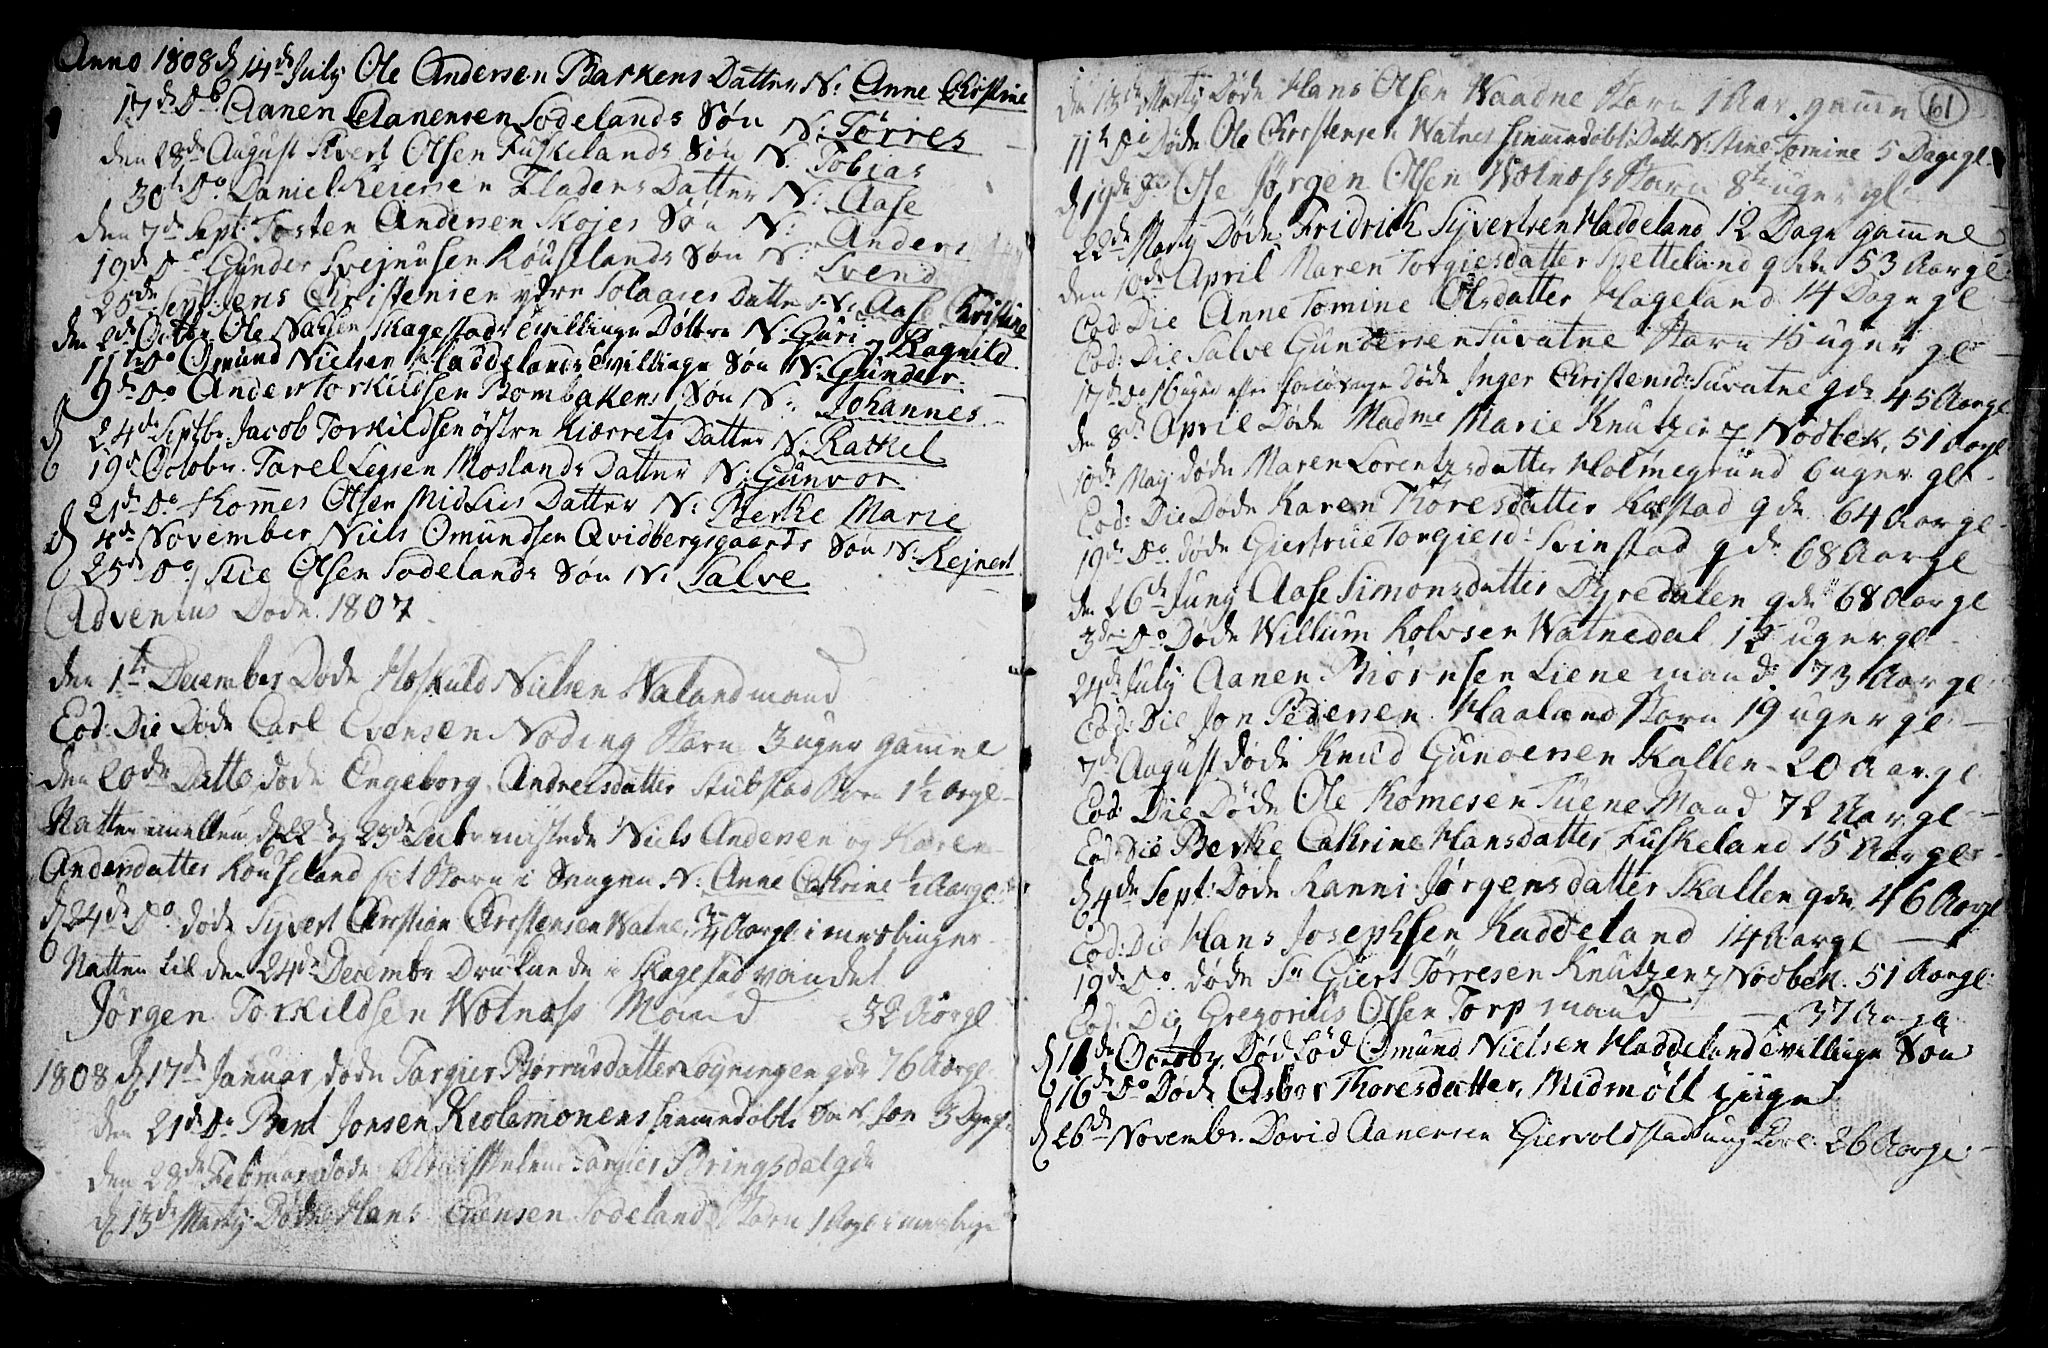 Anno 1808 d 14de July Ole Andersen Barkens Datter N: Anne Christine
17de do Aanen Aanensen Sodelands Søn N: Tørres
den 28de August Sivert Olsen Fuskelands Søn N: Tobias
30te do Daniel Reiersen Fladens Datter N: Aase
den 7de Sept: Tosten Andersen Skojes Søn N: Anders
19de do Gunder Svejnusen Kouselands Søn N: Svend
25de Sept: Jens Christensen ydre Solaases Datter N: Aase Christine
den 2de Octbr Ole Skagestads tvillinge Døttre N: Guri og Ragnild
11te do Omund Nielsen Haddelands tvillinge Søn N: Gunder
9de do Anders Torkildsen Bombakens Søn N: Johannes
d 24de Septbr Jacob Torkildsen østre Kiærrets Datter N: Rachel
19de Octobr. Tarel Leysen Moslands Datter N: Gunvor
21de do Thomes Olsen Midlies Datter N: Berte Marie
d 4de November Niels Omundsen Qvidbergsgaards Søn N: Rejnert
25de do Olsen Sodelands Søn N: Salve
Adventus Døde 1807
den 1te December Døde Hoskuld Nielsen Waland mand
Eod: Die Døde Carl Evensen Noding Barn 3 uger gamme
den 20de Ditto døde Engeborg Andreisdatter Stubstad Barn 1½ Aar gl
Natten imellem d 22de og 23de mistede Niels Andersen og Karen
Andersdatter Kouseland sit Barn i Sengen N: Anne Catrine ½ Aar gl
d 24de do døde Syvert Christian Christensen Watne ¾ Aar gl i meslinger
Natten til den 24de Decembr Druknede i Skagestad vandet
Jørgen Torkildsen Wolnæss Mand 32 Aar gl
1808 d 17de Januar døde Targier Børrusdatter Løgningen gde 76 Aar gl
den 21de do Bent Jonsen Kiolemonens hiemmedøbt Søn N. Jon 3 Dage gl
den 28de Februar døde Targier Bringsdal gde
d 13de Marty Døde Hans Evensen Sodeland Barn 1 Aar gl i meslinge
61
den 13de Marty Døde Hans Olsen Waadne Barn 1 Aar gamme
11te do Døde Ole Christensen Watnes hiemmedøbt Datt N: Stine Tomine 5 Dage gl
d 19de do Jørgen Olsen Wolnæss Barn 8te uger gl
22de Marty Døde Fridrich Syvertsen Haddeland 12 Dage gamme
den 10de April Maren Torgiesdatter Spetteland gde 53 Aar gl
Eod: Die Anne Tomine Olsdatter Hageland 14 Dage gl
Eod: Die Salve Gundersen Tuvatne Barn 15 uger gl
17de do Døde Inger Christensd: Tuvatne gde 45 Aar gl
den 8de April Døde Madme Marie Knutzen Nodbek, 51 Aar gl
10de Maij døde Maren Lorentzdatter Holmegrund 6 uger gl
Eod: Die Døde Karen Toresdatter Kolstad gde 64 Aar gl
19de do døde Giertrue Torgiesd: Svinstad gde 68 Aar gl
den 26de Juny Aase Simonsdatter Dyredalen gde 68 Aar gl
3de do Døde Willum Rolvsen Watnedal 12 uger gl
24de July Aanen Biørnsen Liene mand 73 Aar gl
Eod: Die Jon Pedersen Haaland Barn 19 uger gl
7de August døde Knud Gundersen Skallen 20 Aar gl
Eod: Die Døde Ole Tomesen Tuene Mand 72 Aar gl
Eod: Die Berte Cathrine Hansdatter Fuskeland 15 Aar gl
d 4de Sept: Døde Ranni Jørgensdatter Skallen gde 46 Aar gl
Eod: Die Hans Josephsen Haddeland 14 Aar gl
19de do døde Sr Giert Tørresen Knutzen Nodbek 51 Aar gl
Eod: Die Gregorius Olsen Torp mand 37 Aar gl
d 11de Octobr. Dødfød Omund Nielsen Haddeland tvillinge Søn
16de do Døde Asbor Thoresdatter Midmoll pige
d 26de Novembr. David Aanensen Giervoldstad ung Karl 26 Aar gl